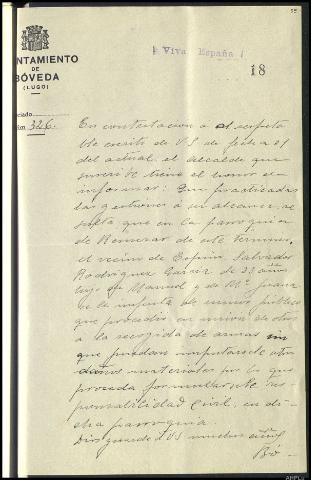 18
¡Viva España!
18
AYUNTAMIENTO
DE
BÓVEDA
(LUGO)
326.
En contestación a el respeta
ble escrito de V S de fecha 21
del actual, el alcalde que
suscribe tiene el honor de
informar: Que practicadas
las gestiones a su alcance, re
sulta que en la parroquia
de Remesar de este término,
el vecino de Salvador
Rodríguez García de 21 años,
hijo de Manuel y de Mª Juana
se le imputa de rumor público
que procedió en unión de otros
a la recogida de armas sin
que puedan imputarsele otros
daños materiales por los que
proceda formularsele res
ponsabilidad Civil, en di
cha parroquia.
Dios guarde a VS muchos años
Bó-